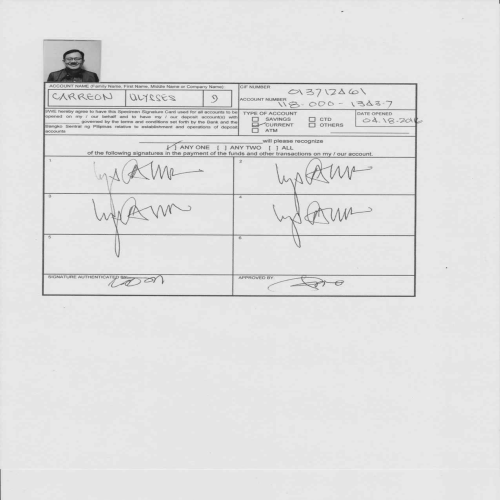 ACCOUNT NAME (Family Name, First Name, Middle Name or Company Name):
CARREON ULYSSES
CIF NUMBER
013712461
ACCOUNT NUMBER
118-000-1343-7
I/We hereby agree to have this Specimen Signature Card used for all accounts to be
opened on my / our behalf and to have my / our deposit account(s) with
governed by the terms and conditions set forth by the Bank and the
Bangko Sentral ng Pilipinas relative to establishment and operations of deposit
accounts
TYPE OF ACCOUNT
SAVINGS CTD
CURRENT OTHERS
ATM
DATE OPENED
04.18.2016
will please recognize
[/] ANY ONE [ ] ANY TWO [ ] ALL
of the following signatures in the payment of the funds and other transactions on my / our account.
1 2
3 4
5 6
SIGNATURE AUTHENTICATED BY:
APPROVED BY: